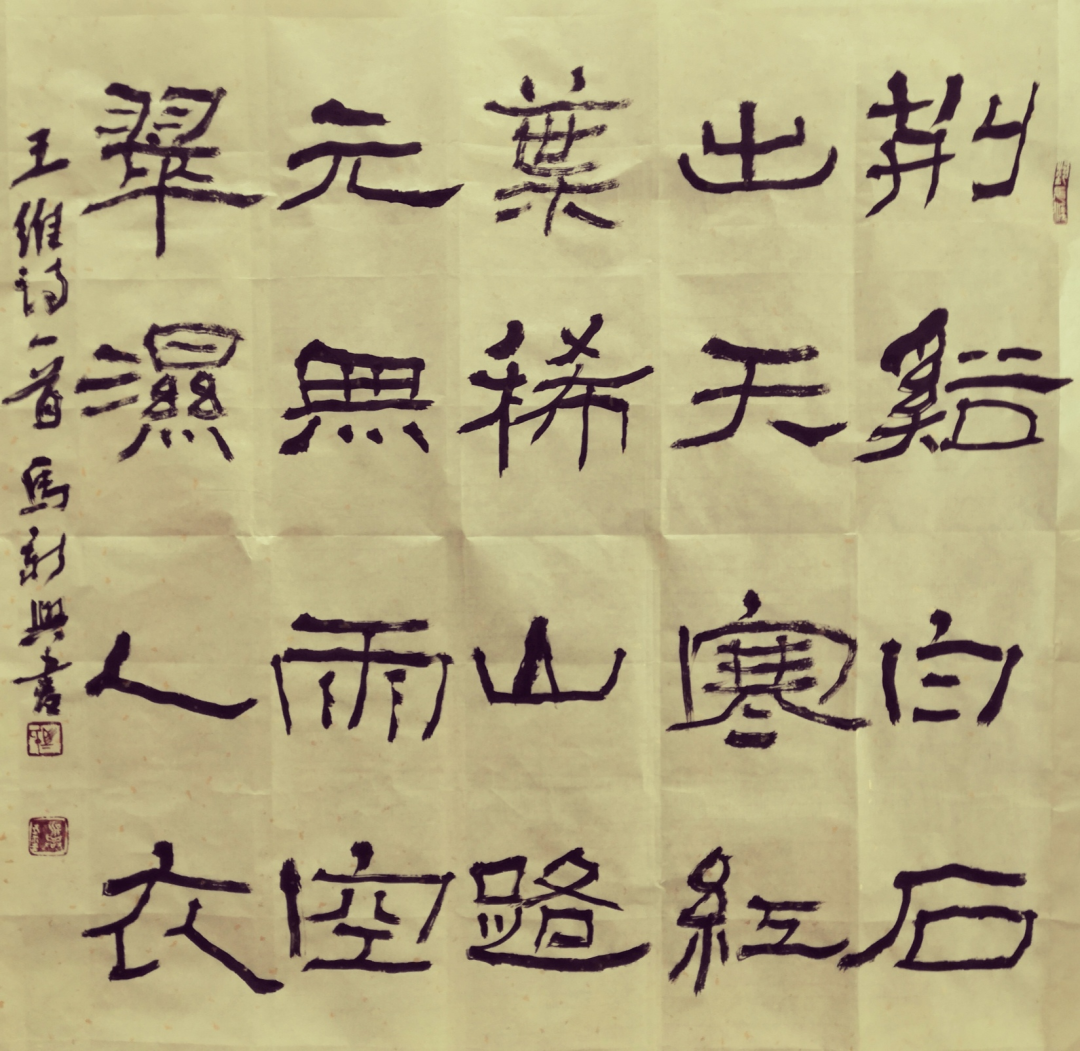 荆谿白石
出天寒紅
葉稀山路
元無雨空
翠濕人衣
王維詩一首 馬新興書